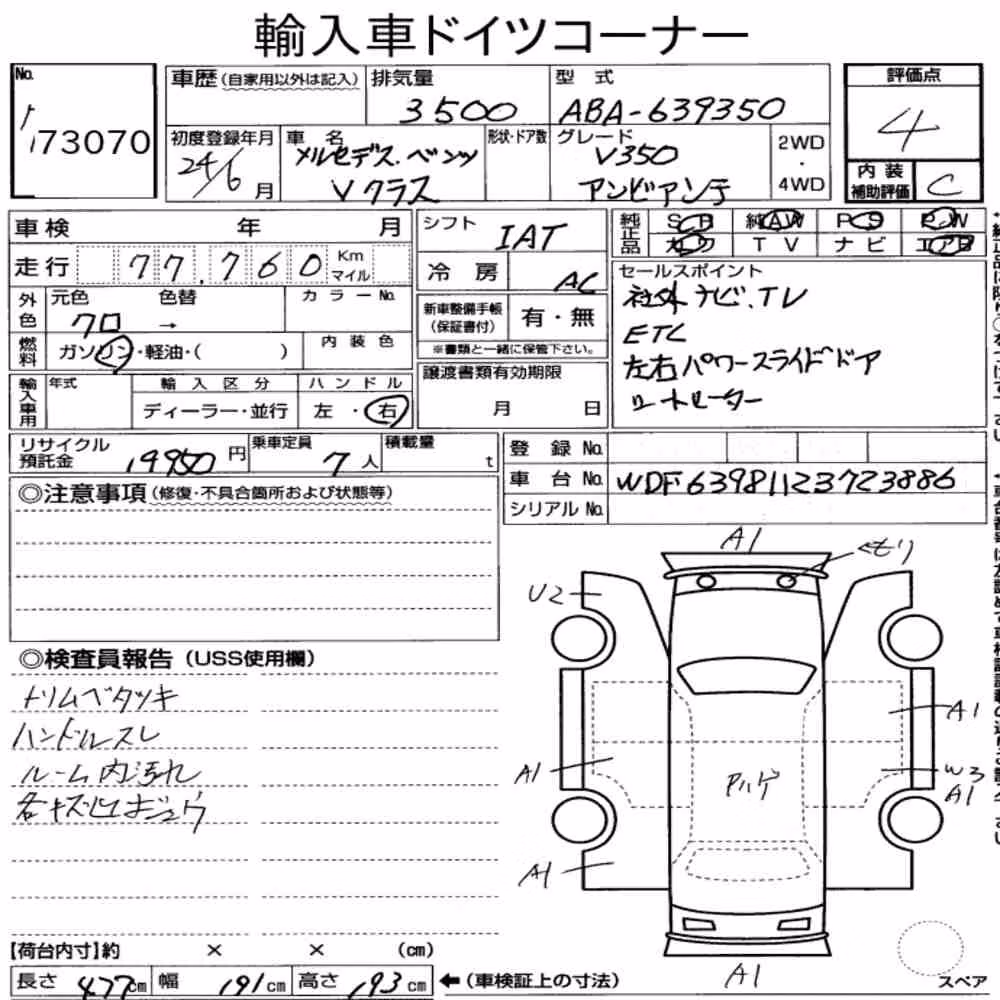 輸入車ドイツコーナー
No. 173070
車歴(自家用以外は記入)
排気量 3500
型式 ABA-639350
評価点 4
初度登録年月 24/6月
車名 メルセデス.ベンツ Vクラス
形状・ドア数
グレード V350 アンビアンテ
2WD・4WD
内装補助評価 C
車検 年 月
シフト IAT
純正品 SR 純AW PS PW
カワ TV ナビ エアB
走行 77,760 Kmマイル
冷房 AC
セールスポイント
社外ナビ.TV
ETC
左右パワースライドドア
シートヒーター
外色 元色 クロ → 色替 カラーNo.
新車整備手帳(保証書付) 有・無
※書類と一緒に保管下さい。
燃料 ガソリン・軽油・( ) 内装色
譲渡書類有効期限 月 日
輸入車用 年式 輸入区分 ディーラー・並行 ハンドル 左・右
リサイクル預託金 19950円
乗車定員 7人
積載量 t
登録No.
車台No. WDF63981123723886
シリアルNo.
◎注意事項(修復・不具合箇所および状態等)
◎検査員報告(USS使用欄)
トリムベタツキ
ハンドルスレ
ルーム内汚れ
各キズ
A1
くもり
U2
A1
A1
W3
A1
アルゲ
A1
A1
【荷台内寸】約 × × (cm)
長さ 477cm 幅 191cm 高さ 193cm ←(車検証上の寸法)
スペア